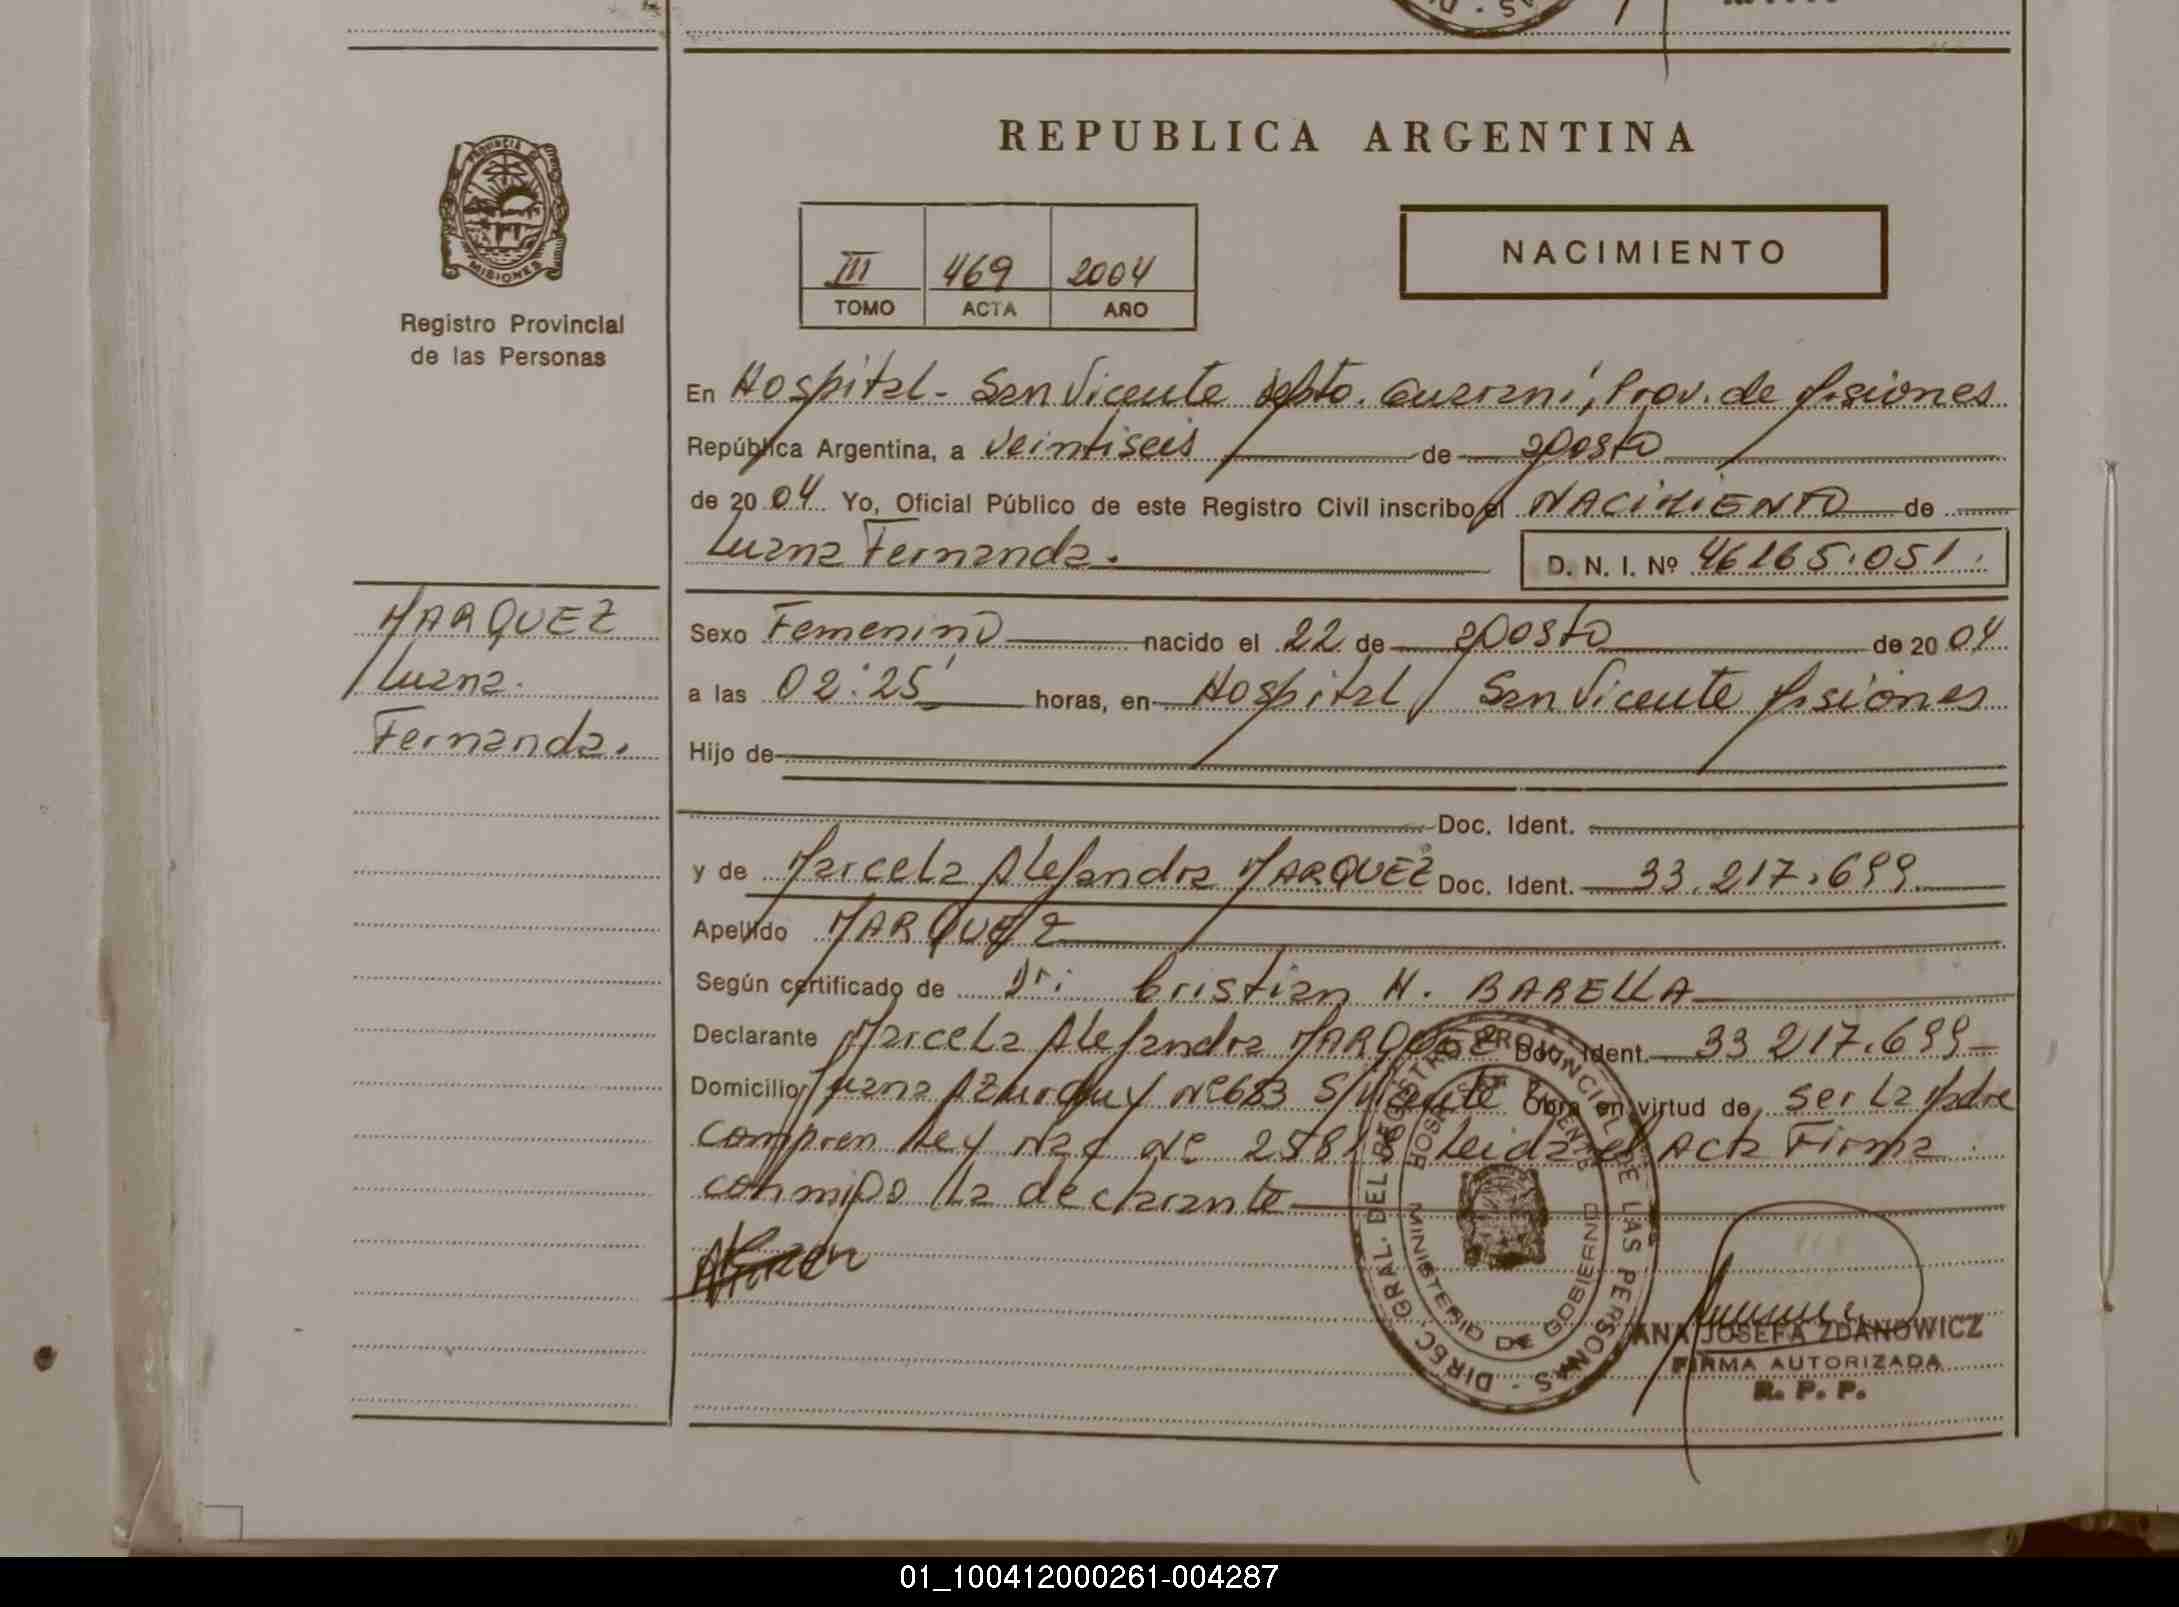 REPUBLICA ARGENTINA
PROVINCIA DE
MISIONES
Registro Provincial
de las Personas
III 469 2004
TOMO ACTA AÑO
NACIMIENTO
En Hospital - San Vicente Dpto. Guaraní, Prov. de Misiones
República Argentina, a veintiseis de agosto
de 2004 Yo, Oficial Público de este Registro Civil inscribo el NACIMIENTO de
Luana Fernanda.
D. N. I. Nº 46165.051.
MARQUEZ
Luana.
Fernanda.
Sexo Femenino nacido el 22 de agosto de 2004
a las 02:25' horas, en Hospital San Vicente Misiones
Hijo de
Doc. Ident.
y de Marcela Alejandra MARQUEZ Doc. Ident. 33.217.699
Apellido MARQUEZ
Según certificado de Dr. Cristian H. BARELLA
Declarante Marcela Alejandra MARQUEZ Doc. Ident. 33 217.699
Domicilio Juana Azurduy Nº 683 S/Vicente Obra en virtud de ser la Madre
Ley Nac Nº 25818 Leida el Acta Firma
conmigo la declarante
DIREC. GRAL. DEL REGISTRO PROVINCIAL DE LAS PERSONAS
MINISTERIO DE GOBIERNO
ANA JOSEFA ZDANOWICZ
FIRMA AUTORIZADA
R. P. P.
01_100412000261-004287